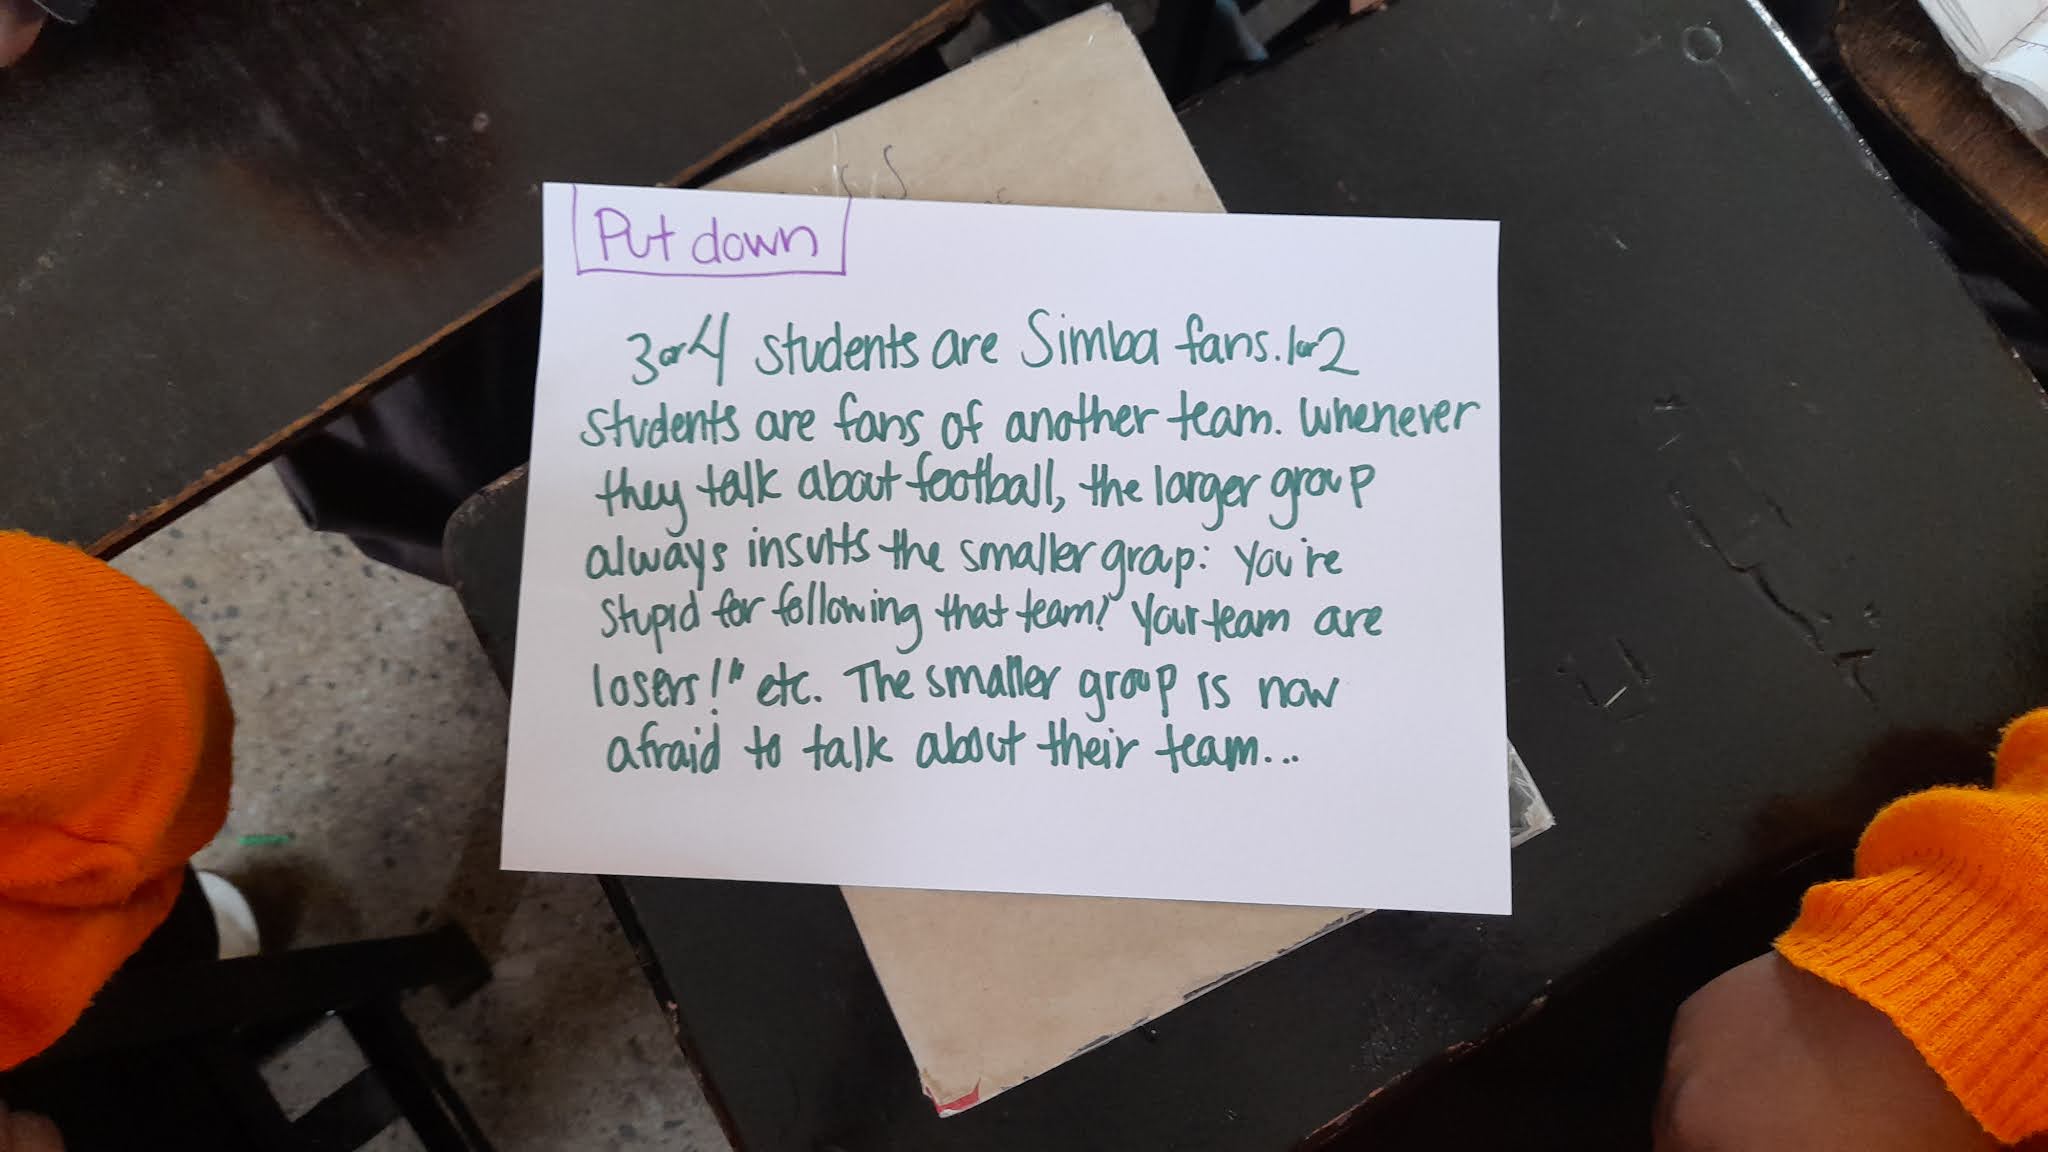 Put down
3 or 4 students are Simba fans. 1 or 2
students are fans of another team. Whenever
they talk about football, the larger group
always insults the smaller group: You're
stupid for following that team! Your team are
losers!" etc. The smaller group is now
afraid to talk about their team...